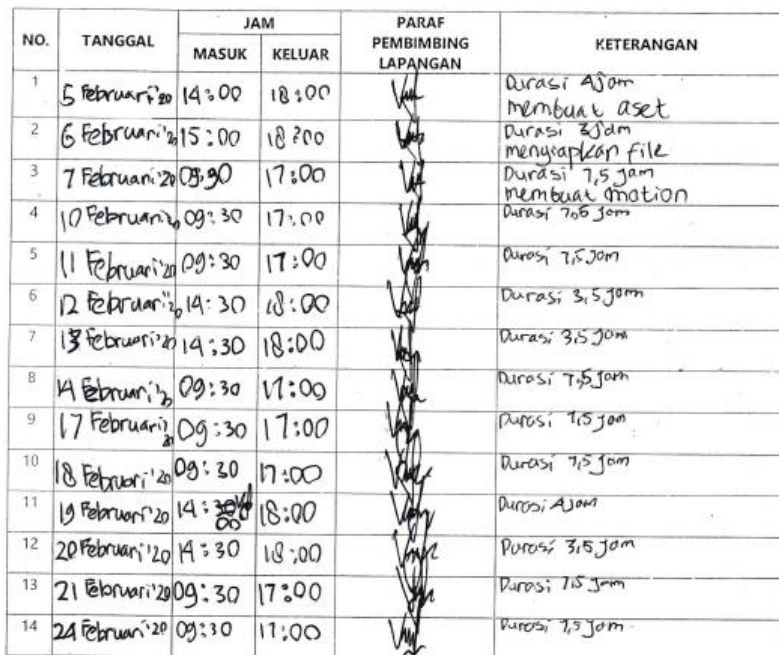 NO. TANGGAL JAM PARAF PEMBIMBING LAPANGAN KETERANGAN
MASUK KELUAR
1 5 Februari '20 14:00 18:00 Durasi 4 jam
membuat aset
2 6 Februari '20 15:00 18:00 Durasi 3 jam
menyiapkan file
3 7 Februari '20 09:30 17:00 Durasi 7,5 jam
membuat motion
4 10 Februari '20 09:30 17:00 Durasi 7,5 jam
5 11 Februari '20 09:30 17:00 Durasi 7,5 jam
6 12 Februari '20 14:30 18:00 Durasi 3,5 jam
7 13 Februari '20 14:30 18:00 Durasi 3,5 jam
8 14 Februari '20 09:30 17:00 Durasi 7,5 jam
9 17 Februari '20 09:30 17:00 Durasi 7,5 jam
10 18 Februari '20 09:30 17:00 Durasi 7,5 jam
11 19 Februari '20 14:00 18:00 Durasi 4 jam
12 20 Februari '20 14:30 18:00 Durasi 3,5 jam
13 21 Februari '20 09:30 17:00 Durasi 7,5 jam
14 24 Februari '20 09:30 17:00 Durasi 7,5 jam